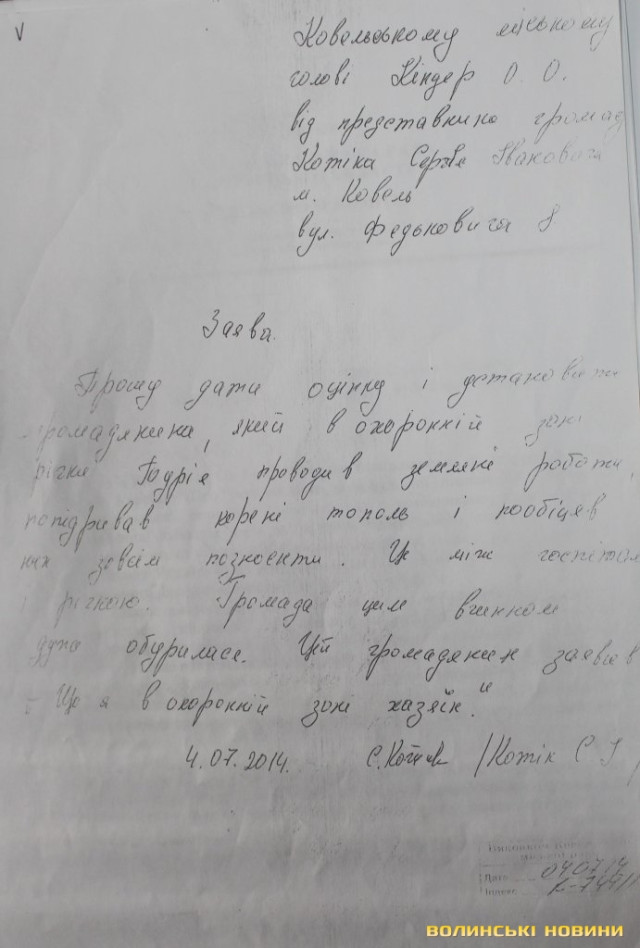 V
Ковельському міському
голові Кіндер О. О.
від представника громад
Котіка Сергія Івановича
м. Ковель
вул. Федьковича 8
Заява.
Прошу дати оцінку і встановити
громадянина, який в охоронній зоні
річки Турія проводив земляні роботи,
попідривав корені тополь і пообіцяв
їх зовсім позносити. Це між госпіталем
і річкою. Громада цим вчинком
дуже обурилася. Цей громадянин заявив
Що я в охоронній зоні хазяїн."
4.07.2014. С. Котік /Котік С І/
Дата 040714
Індекс К-747/
ВОЛИНСЬКІ НОВИНИ